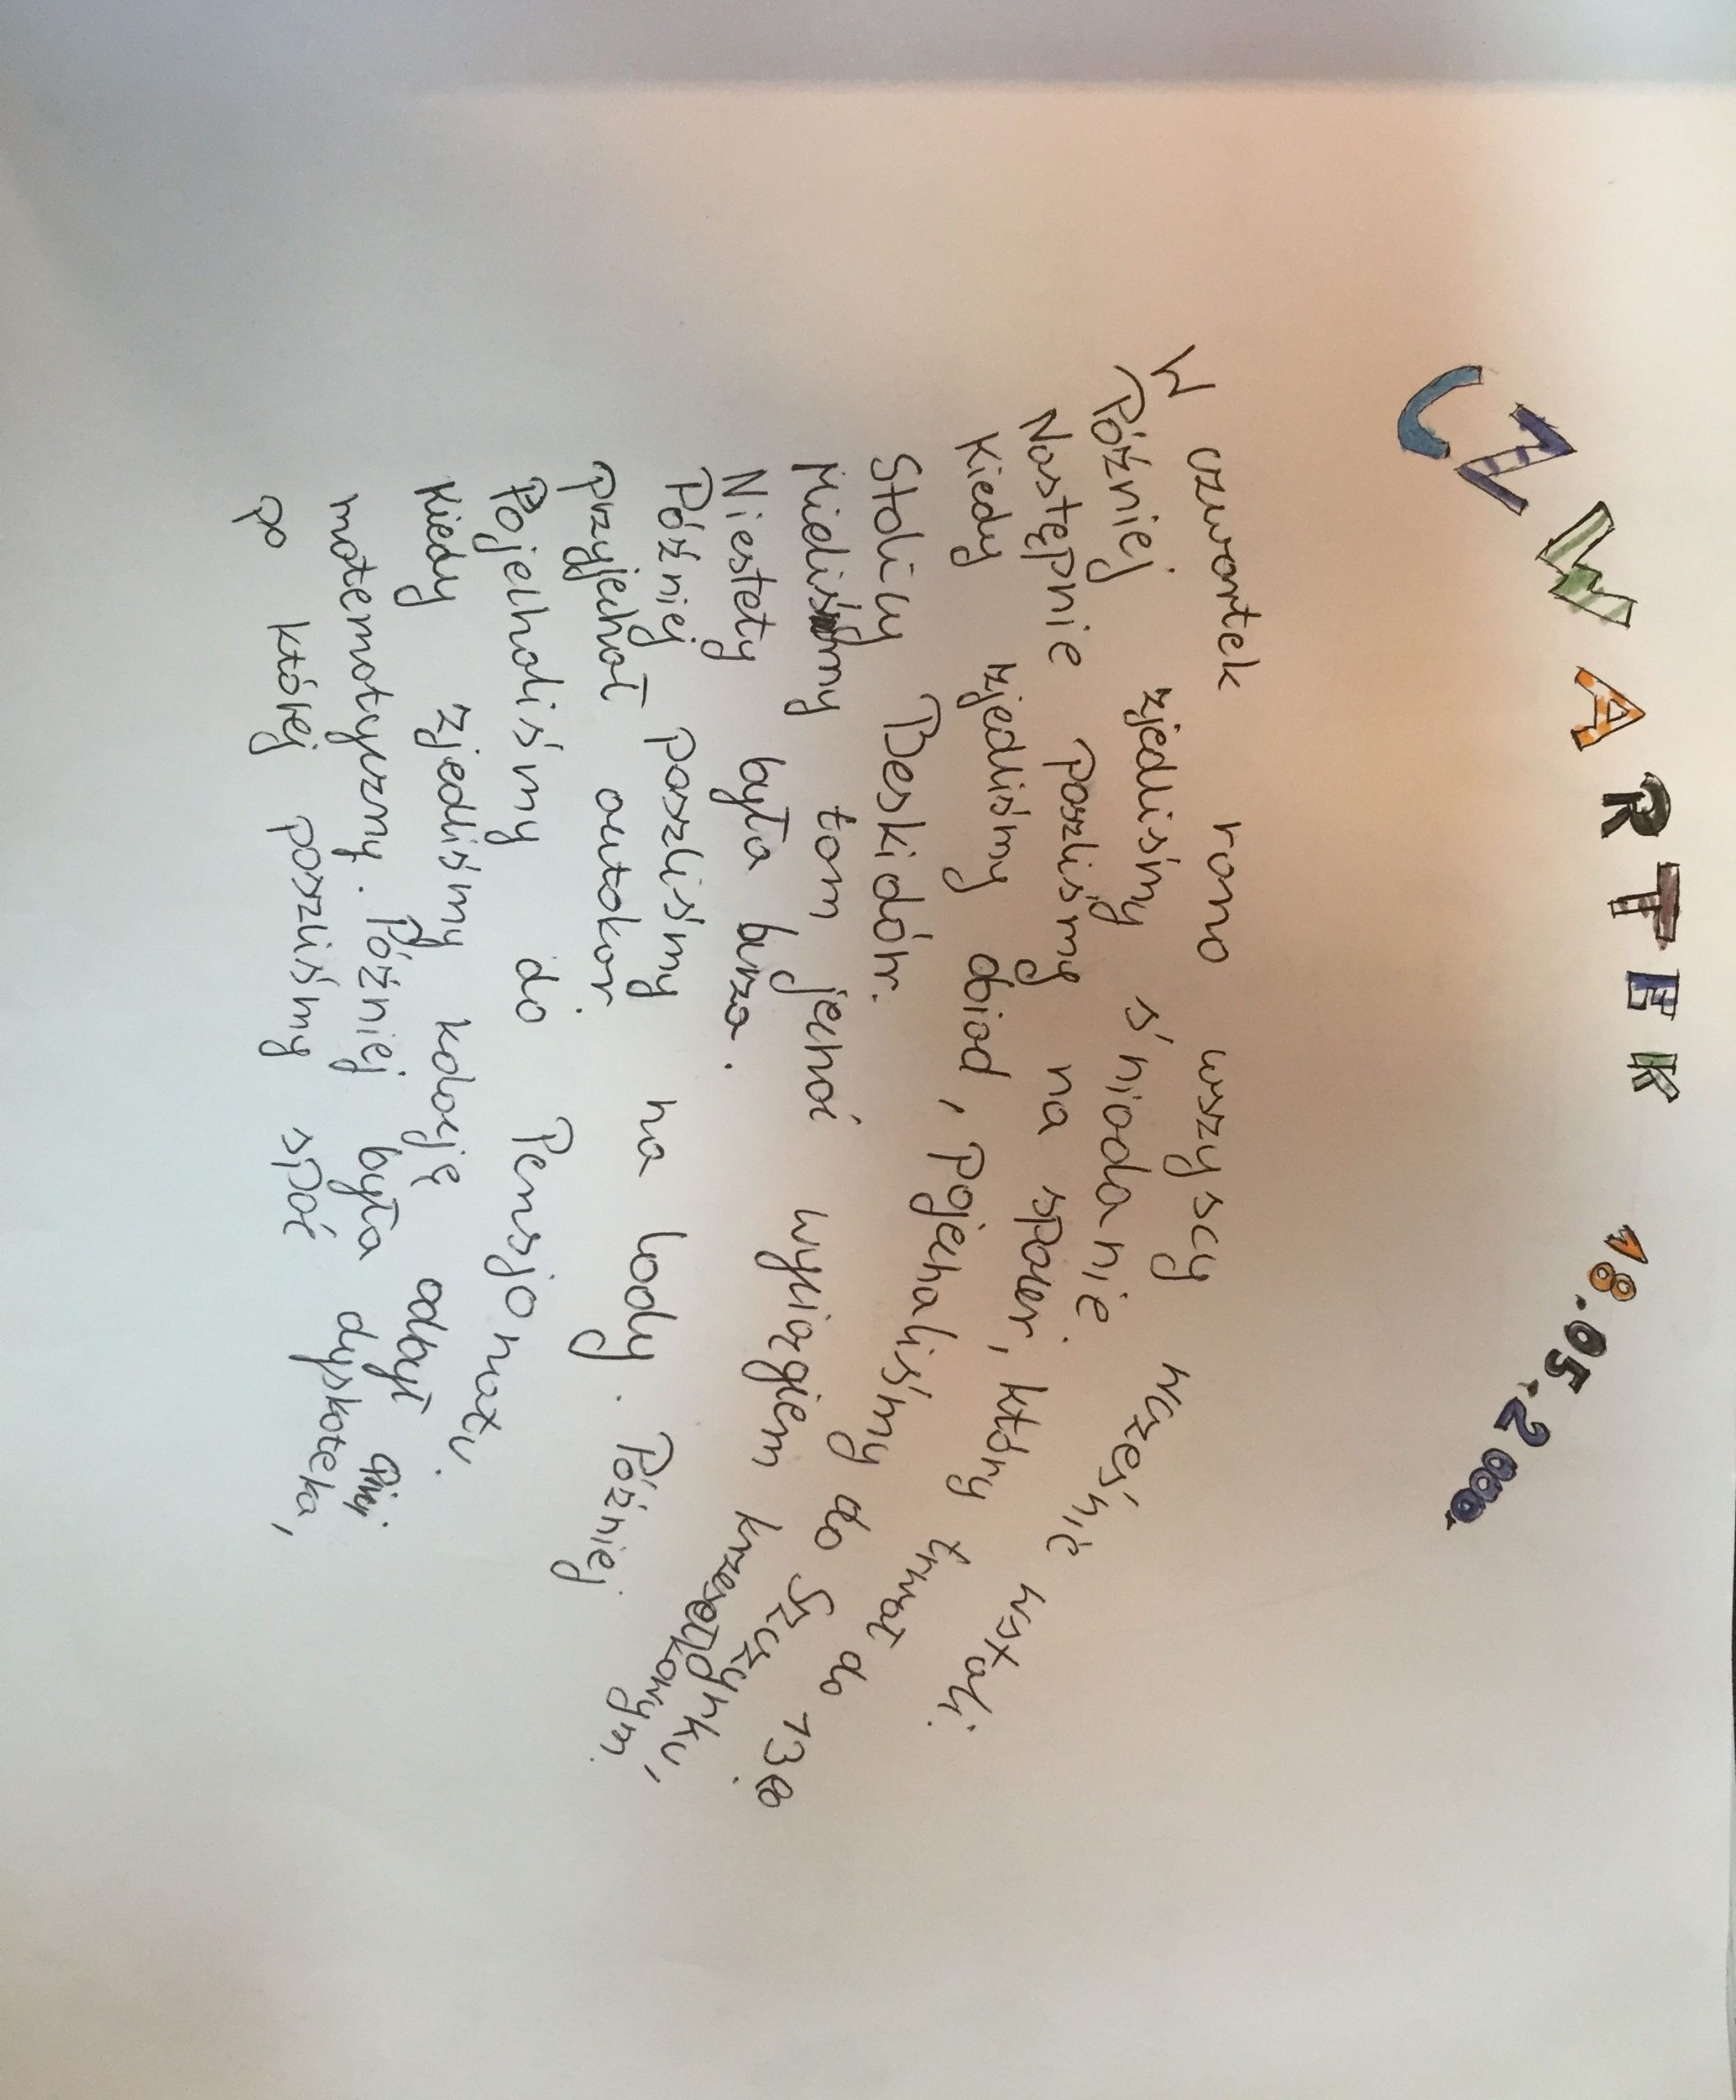 CZWARTEK 18.05.2000.
W czwartek rano wszyscy wcześnie wstali.
Później zjedliśmy śniadanie.
Następnie poszliśmy na spacer, który trwał do 13⁰⁰.
Kiedy zjedliśmy obiad, Pojechaliśmy do Szczyrku,
Stolicy Beskidów.
Mieliśmy tam jechać wyciągiem krzesełkowym.
Niestety była burza.
Później poszliśmy na lody. Później
przyjechał autokar.
Pojechaliśmy do Pensjonatu.
Kiedy zjedliśmy kolację odbył
matematyczny. Później była dyskoteka,
po której poszliśmy spać